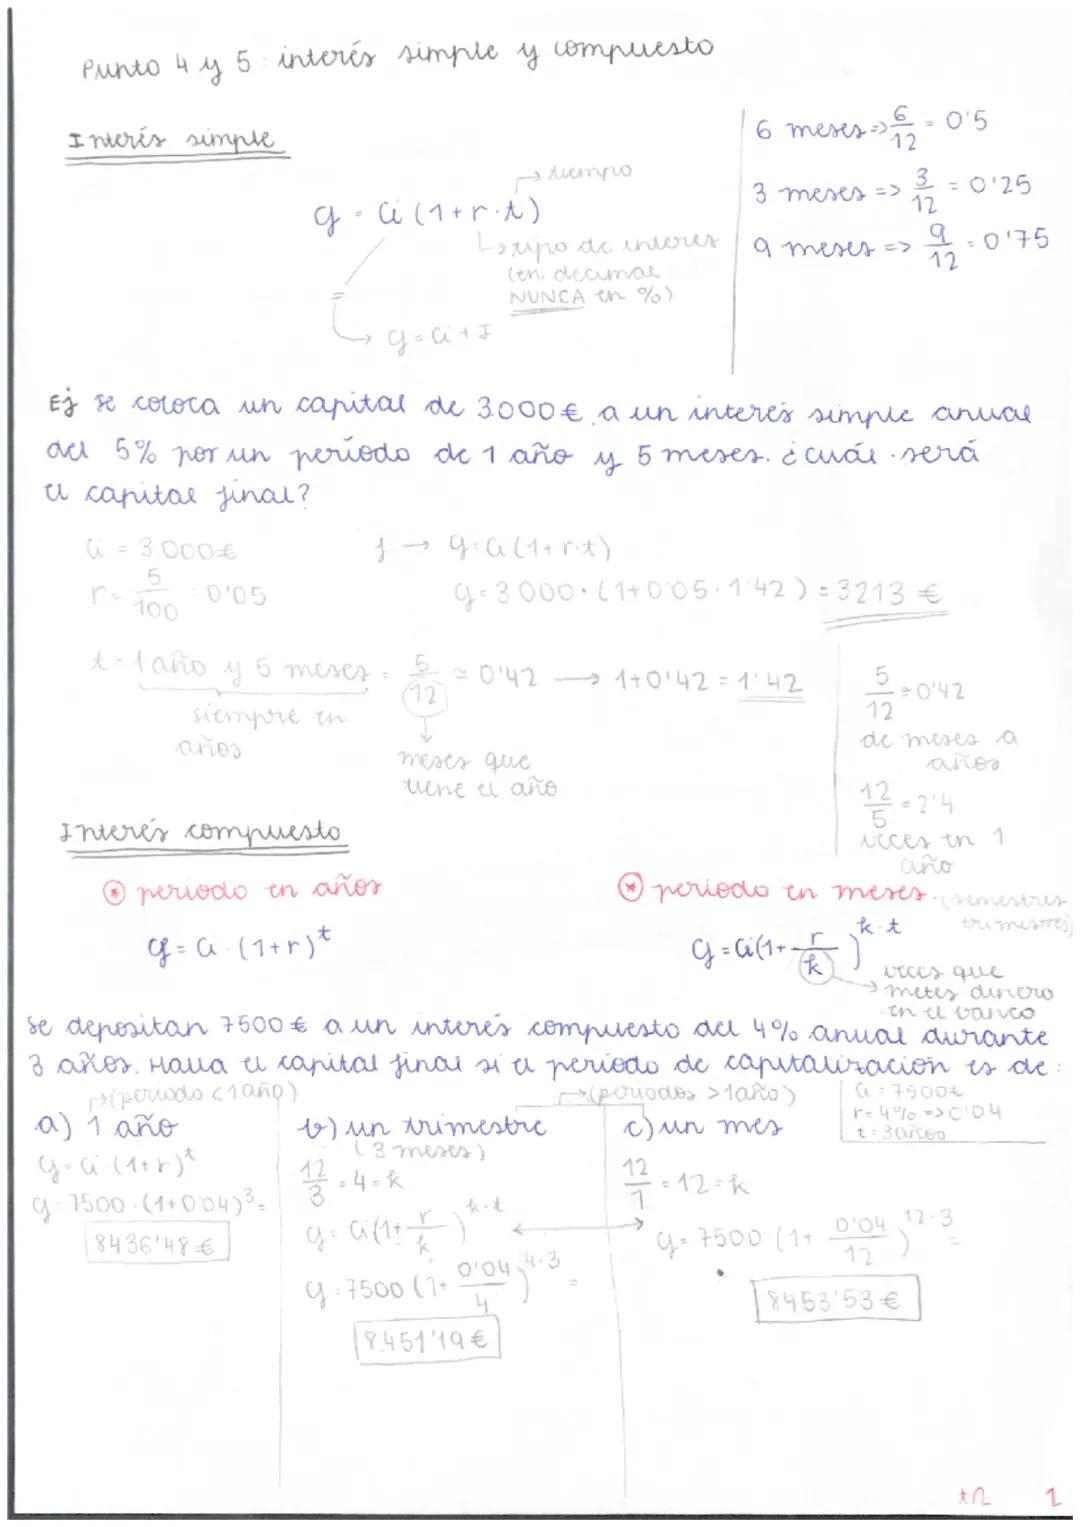 Punto 4 y 5: interés simple y compuesto
Interés simple
6 meses => 6/12 = 0'5
3 meses => 3/12 = 0'25
9 meses => 9/12 = 0'75
tiempo
Cf = Ci (1+r·t)
tipo de interes
(en decimal
NUNCA en %)
=
Cf = Ci + I
Ej se coloca un capital de 3000€ a un interés simple anual
del 5% por un período de 1 año y 5 meses. ¿cuál será
el capital final?
Ci = 3000€
f → Cf = Ci (1+r·t)
r = 5/100 = 0'05
Cf = 3000·(1+0'05·1'42) = 3213 €
t = 1 año y 5 meses = 5/12 ≃ 0'42 → 1+0'42 = 1'42
siempre en
años
meses que
tiene el año
5/12 ≃ 0'42
de meses a
años
12/5 = 2'4
veces en 1
año
Interés compuesto
* periodo en años
* periodo en meses. (semestres
trimestres)
Cf = Ci · (1+r)^t
Cf = Ci (1 + r/k)^k·t
veces que
metes dinero
en el banco
se depositan 7500€ a un interés compuesto del 4% anual durante
3 años. Halla el capital final si el período de capitalización es de:
(periodo <1 año)
(periodos >1 año)
Ci = 7500€
r = 4% => 0'04
t = 3 años
a) 1 año
Cf = Ci · (1+r)^t
Cf = 7500·(1+0'04)^3 =
8436'48 €
b) un trimestre
(3 meses)
12/3 = 4 = k
Cf = Ci (1 + r/k)^k·t
Cf = 7500 (1 + 0'04/4)^4·3 =
8.451'19 €
c) un mes
12/1 = 12 = k
Cf = 7500 (1 + 0'04/12)^12·3 =
8453'53 €
1